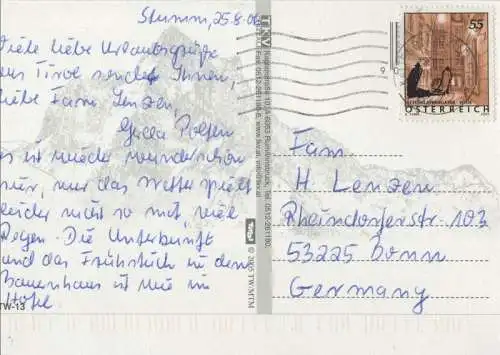 Stumm, 25.8.06
Viele liebe Urlaubsgrüße
aus Tirol sendet Ihnen,
liebe Fam Lenzen,
Gerda
es ist wieder wunderschön
hier, nur das Wetter spielt
leider nicht so mit, viel
Regen. Die Unterkunft
und das Frühstück in dem
Bauernhaus ist wie im
Hotel
TW-13
TKV
© 2005 TW/MTM
55
ÖSTERREICH
Fam
H Lenzen
Rheindorferstr. 103
53225 Bonn
Germany